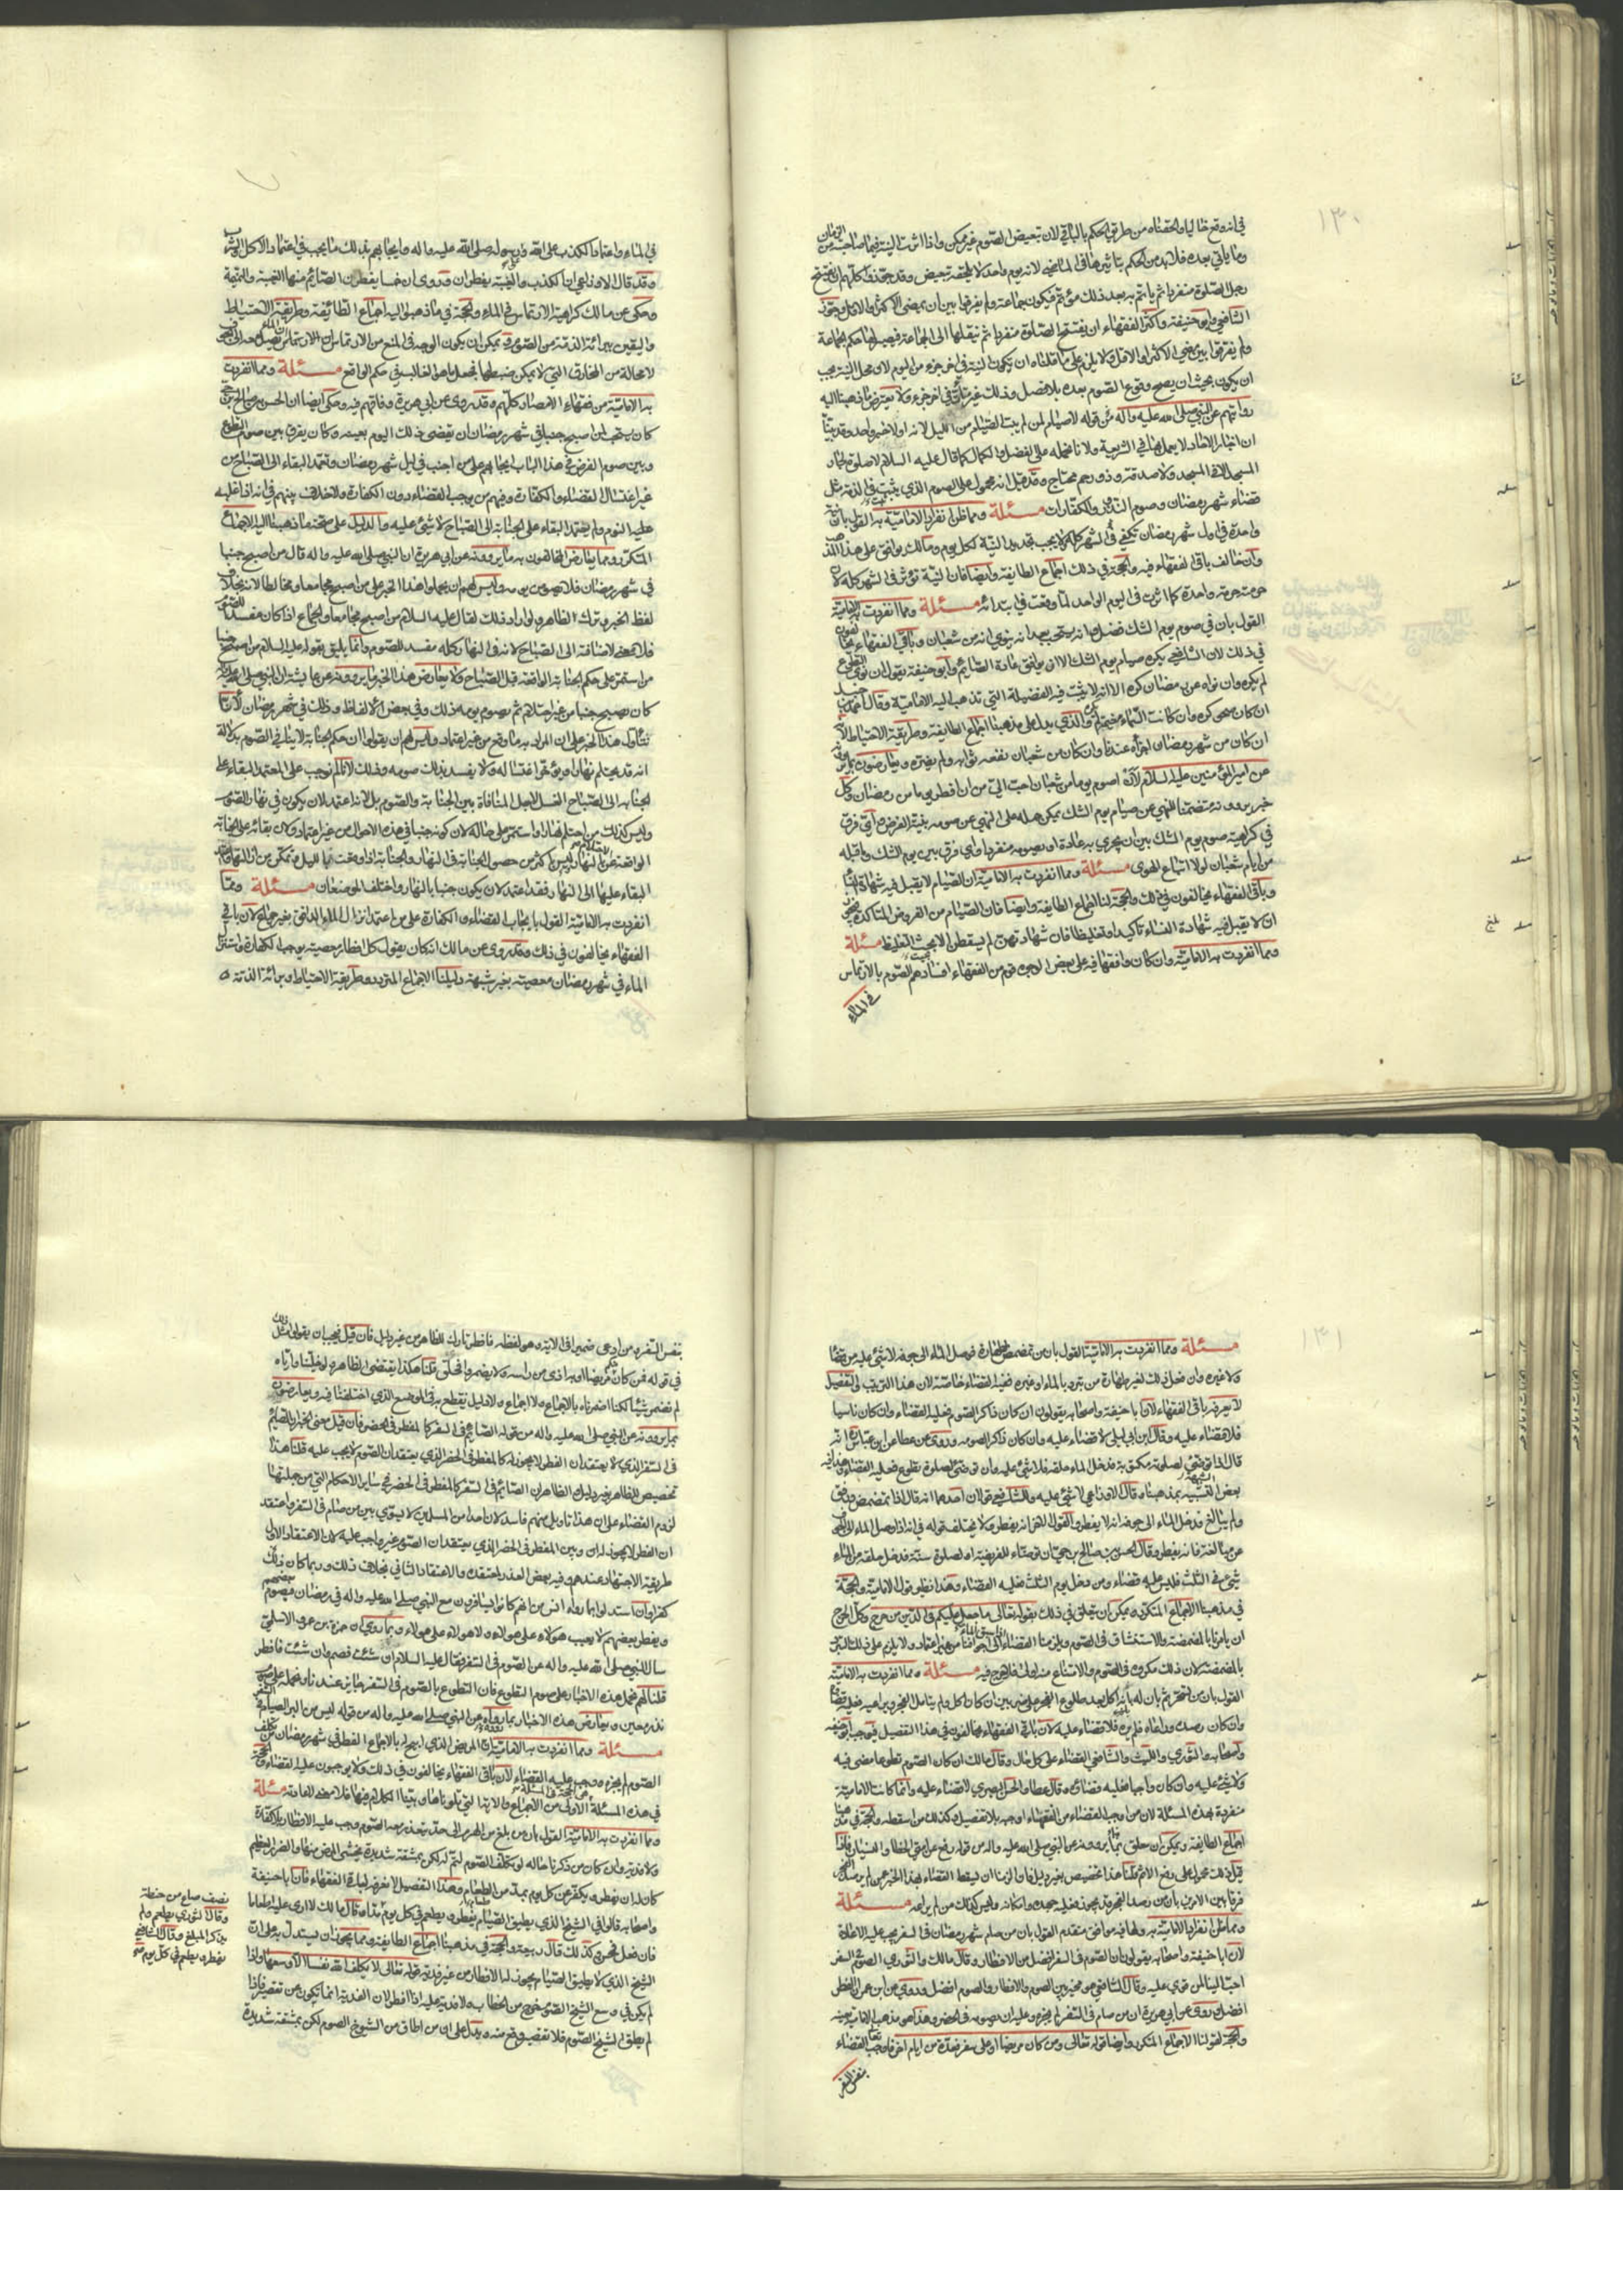 ١٣٠
في انه وقع خاليا والحقناه من طريق الحكم بالباقي لان تبعيض الصوم غير ممكن واذا اثرت النية فيما صاحبته من الزمان
وما ياتي بعده فلابد من الحكم بتاثيرها في الماضي لانه يوم واحد لا يلحقه تبعيض وقد جوزوا كلهم ان يفتتح
رجل الصلوة منفردا ثم ياتم به بعد ذلك مؤتم فيكون جماعة ولم يفرقوا بين ان يمضى الاكثر او الاقل وجوز
الشافعي وابو حنيفة واكثر الفقهاء ان يفتتح الصلوة منفردا ثم ينقلها الى الجماعة فيصير لها حكم الجماعة
ولم يفرقوا بين مضي الاكثر او الاقل ولا يلزم على ما قلناه ان تكون النية في اخر جزء من اليوم لان محل النية يجب
ان يكون بحيث ان يصح وقوع الصوم بعده بلا فصل وذلك غير متات في اخر جزء ولا يعترض ما ذهبنا اليه
روايتهم عن النبي صلى الله عليه واله من قوله لا صيام لمن لم يبت الصيام من الليل لانه اولا خبر واحد وقد بينا
ان اخبار الاحاد لا يعمل بها في الشريعة ولانا نحمله على الفضل والكمال كما قال عليه السلام لا صلوة لجار
المسجد الا في المسجد ولا صدقة وذو رحم محتاج وقد قيل انه محمول على الصوم الذي يثبت في الذمة مثل
قضاء شهر رمضان وصوم النذر والكفارات مسئلة ومما ظن انفراد الامامية به القول بان نية
واحدة في اول شهر رمضان تكفي في الشهر كله ولا يجب تجديد النية لكل يوم ومالك يوافق على هذا المذهب
وان خالف باقي الفقهاء فيه والحجة في ذلك اجماع الطايفة وايضا فان النية تؤثر في الشهر كله لان
حرمته حرمة واحدة كما اثرت في اليوم الواحد لما وقعت في ابتدائه مسئلة ومما انفردت به الامامية
القول بان في صوم يوم الشك فضل وانه يستحب بعد انه ينوي انه من شعبان وباقي الفقهاء يخالفون
في ذلك لان الشافعي يكره صيام يوم الشك الا ان يوافق عادة الصائم وابو حنيفة يقول ان نوى التطوع
لم يكره وان نواه عن رمضان كره الا انه لا يثبت فيه الفضيلة التي تذهب اليه الامامية وقال احمد بن حنبل
ان كان صحو كره وان كانت السماء مغيمة لم يكره والذي يدل على مذهبنا اجماع الطايفة وطريقة الاحتياط لانه
ان كان من شهر رمضان اجزأه عندنا وان كان من شعبان نفعه ثوابه ولم يضره ويعارضون بما يروونه
عن امير المؤمنين عليه السلام لان اصوم يوما من شعبان احب الي من ان افطر يوما من رمضان وكل
خبر يروونه متضمنا للنهي عن صيام يوم الشك يمكن حمله على النهي عن صومه بنية الفرض واي فرق
في كراهية صوم يوم الشك بين ان يجري به عادة او يصومه منفردا واي فرق بين يوم الشك وما قبله
من ايام شعبان لولا اتباع الهوى مسئلة ومما انفردت به الامامية ان الصيام لا يقبل فيه شهادة النساء
وباقي الفقهاء يخالفون في ذلك والحجة لنا اجماع الطايفة وايضا فان الصيام من الفروض المتاكدة
ان لا يقبل فيه شهادة النساء تاكيدا وتغليظا فان شهادتهن لم يسقطن الا بحيث التغليظ مسئلة
ومما انفردت به الامامية وان كان وافقها فيه على بعض الوجوه قوم من الفقهاء افسادهم الصوم بالارتماس
في الماء
في الماء واعتماد الكذب على الله وعلى رسوله صلى الله عليه واله وايجابهم بذلك ما يجب في اعتماد الاكل والشرب
وقد قال الاوزاعي ان الكذب والغيبة يفطران وروى ان خمسا يفطرن الصائم منها الغيبة والنميمة
وحكى عن مالك كراهية الارتماس في الماء والحجة في ما ذهبوا اليه اجماع الطائفة وطريقة الاحتياط
واليقين ببرائة الذمة من الصوم ويمكن ان يكون الوجه في المنع من الارتماس ان الماء يصل معه الى الجوف
لا محالة من المخارق التي لا يمكن ضبطها فجعل ما هو الغالب في حكم الواقع مسئلة ومما انفردت
به الامامية من فقهاء الامصار كلهم وقد روى عن ابي هريرة وفاقهم فيه وحكى ايضا ان الحسن بن صالح بن حي
كان يستحب لمن اصبح جنبا في شهر رمضان ان يقضى ذلك اليوم بعينه وكان يفرق بين صوم التطوع
وبين صوم الفرض في هذا الباب ايجابهم على من اجنب في ليل شهر رمضان وتعمد البقاء الى الصباح من
غير اغتسال القضاء والكفارة وفيهم من يوجب القضاء دون الكفارة ولا خلاف بينهم في انه اذا غلبه
عليه النوم ولم يعتمد البقاء على الجنابة الى الصباح لا شيء عليه والدليل على صحة ما ذهبنا اليه الاجماع
المتكرر ومما يعارض المخالفون به ما يروونه عن ابي هريرة ان النبي صلى الله عليه واله قال من اصبح جنبا
في شهر رمضان فلا يصومن يومه وليس لهم ان يحملوا هذا الخبر على من اصبح مجامعا ومخالطا لانه بخلاف
لفظ الخبر وترك الظاهر ولو اراد ذلك لقال عليه السلام من اصبح مجامعا والجماع اذا كان مفسدا للصوم
فلا معنى لاضافته الى الصباح لانه في النهار كله مفسد للصوم وانما يليق بقوله عليه السلام من اصبح جنبا
من استمر على حكم الجنابة الواقعة قبل الصباح ولا يعارض هذا الخبر ما يروونه عن عايشة ان النبي صلى الله عليه واله
كان يصبح جنبا من غير احتلام ثم يصوم يومه ذلك وفي بعض الالفاظ وذلك في شهر رمضان لانا
نتأول هذا الخبر على ان المراد به ما وقع من غير اعتماد وليس لهم ان يقولوا ان حكم الجنابة لا ينافي الصوم بدلالة
انه قد يحتلم نهارا ويؤخر اغتساله ولا يفسد بذلك صومه وذلك لانا لم نوجب على المعتمد البقاء على
الجنابة الى الصباح الغسل لاجل المنافاة بين الجنابة والصوم بل لانه اعتمد لان يكون في نهار الصوم
وليس كذلك من احتلم نهارا واستمر على حاله لان كونه جنبا في هذه الاحوال من غير اعتماد
البقاء عليها الى النهار فقد اعتمد لان يكون جنبا بالنهار واختلف الموضعان مسئلة ومما
انفردت به الامامية القول بايجاب القضاء والكفارة على من اعتمد انزال الماء الدافق بغير جماع لان باقي
الفقهاء يخالفون في ذلك وقد روى عن مالك انه كان يقول كل افطار بمعصية يوجب الكفارة واستنزال
الماء في شهر رمضان معصية بغير شبهة دليلنا الاجماع المتردد وطريقة الاحتياط وبرائة الذمة
١٣١
مسئلة ومما انفردت به الامامية القول بان من تمضمض لطهارة فوصل الماء الى جوفه لا شيء عليه من قضاء
ولا غيره وان فعل ذلك لغير طهارة من تبرد بالماء او غيره ففيه القضاء خاصة لان هذا الترتيب والتفصيل
لا يعرفه باقي الفقهاء لان ابا حنيفة واصحابه يقولون ان كان ذاكرا لصومه فعليه القضاء وان كان ناسيا
فلا قضاء عليه وقال ابن ابي ليلى لا قضاء عليه وان كان ذاكرا لصومه وروى عن عطا عن ابن عباس انه
قال اذا توضئ لصلوة مكتوبة فدخل الماء حلقه فلا شيء عليه وان توضئ لصلوة تطوع فعليه القضاء وهذا فيه
بعض الشبه بمذهبنا وقال الاوزاعي لا شيء عليه وللشافعي قولان احدهما انه قال اذا تمضمض ورفق
ولم يبالغ فدخل الماء الى جوفه انه لا يفطر والقول الاخر انه يفطر ولا يختلف قوله في انه اذا وصل الماء الى الجوف
عن مبالغة فانه يفطر وقال الحسن بن صالح بن حي ان توضئ للفريضة او لصلوة سنة فدخل حلقه من الماء
شيء في الثلث فليس عليه قضاء ومن دخل بعد الثلث فعليه القضاء وهذا نظير قول الامامية والحجة
في مذهبنا الاجماع المتكرر ويمكن ان يتعلق في ذلك بقوله تعالى ما جعل عليكم في الدين من حرج وكل الحرج
ان يامرنا بالمضمضة والاستنشاق في الصوم ويلزمنا القضاء اذا سبق الماء الى اجوافنا من غير اعتماد ولا يلزم على ذلك التبرد
بالمضمضة لان ذلك مكروه في الصوم والامتناع منه اولى فلا حرج فيه مسئلة ومما انفردت به الامامية
القول بان من تسحر ثم بان له انه اكل بعد طلوع الفجر على ضربين ان كان اكل ولم يتامل الفجر ويراعيه فعليه قضاء
وان كان رصده وراعاه فلم يره فلا قضاء عليه لان باقي الفقهاء يخالفون في هذا التفصيل فيوجب ابو حنيفة
واصحابه والثوري والليث والشافعي القضاء على كل حال وقال مالك ان كان الصوم تطوعا مضى فيه
ولا شيء عليه وان كان واجبا فعليه قضاؤه وقال عطا والحسن البصري لا قضاء عليه وانما كانت الامامية
منفردة بهذه المسئلة لان من اوجب القضاء من الفقهاء اوجبه بلا تفصيل وكذلك من اسقطه والحجة في مذهبنا
اجماع الطايفة ويمكن ان يعلق بما يروونه عن النبي صلى الله عليه واله من قوله رفع عن امتي الخطا والنسيان فاذا
قيل ذلك محمول على رفع الاثم قلنا هذا تخصيص بغير دليل
فرقا بين الامرين بان من رصد الفجر
مسئلة
ومما ظن انفراد الامامية به ولها فيه موافق متقدم القول بان من صام شهر رمضان في السفر يجب عليه الاعادة
لان ابا حنيفة واصحابه يقولون ان الصوم في السفر افضل من الافطار وقال مالك والثوري الصوم في السفر
احب الينا لمن قوي عليه وقال الشافعي هو مخير بين الصوم والافطار والصوم افضل وروى عن ابن عمر ان الفطر
افضل وروى عن ابي هريرة ان من صام في السفر لم يجزه وعليه ان يصوم في الحضر وهذا هو مذهب الامامية بعينه
والحجة لقولنا الاجماع المتكرر وايضا قوله تعالى ومن كان مريضا او على سفر فعدة من ايام اخر فاوجب تعالى القضاء
بنفس السفر
بنفس السفر ومن ادعى ضميرا في الاية وهو لفظه فافطر تارك للظاهر من غير دليل فان قيل فيجب ان يقولوا مثل ذلك
في قوله فمن كان منكم مريضا او به اذى من راسه ولا يضمروا فحلق قلنا هكذا يقتضى الظاهر ولو خلينا واياه
لم نضمر شيئا لكنا اضمرناه بالاجماع ولا اجماع ولا دليل يقطع به في الموضع الذي اختلفنا فيه ويعارضون
بما يروونه عن النبي صلى الله عليه واله من قوله الصائم في السفر كالمفطر في الحضر فان قيل معنى الخبر ان الصائم
في السفر الذي لا يعتقد ان الفطر لا يجوز له كالمفطر في الحضر الذي يعتقد ان الصوم لا يجب عليه قلنا هذا
تخصيص للظاهر بغير دليل لان الظاهر ان الصائم في السفر كالمفطر في الحضر في ساير الاحكام التي من جملتها
لزوم القضاء على ان هذا تاويل منهم فاسد لان احدا من المسلمين لا يسوي بين من صام في السفر واعتقد
ان الفطر لا يجوز له وبين المفطر في الحضر الذي يعتقد ان الصوم غير واجب عليه لان الاعتقاد الاول
طريقه الاجتهاد عندهم وفيه بعض العذر لمعتقده والاعتقاد الثاني بخلاف ذلك وربما كان ذلك
كفرا وان استدلوا بما رواه انس من انهم كانوا يسافرون مع النبي صلى الله عليه واله في رمضان فيصوم بعضهم
ويفطر بعضهم لا يعيب هولاء على هولاء ولا هولاء على هولاء وبما روى ان حمزة بن عمرو الاسلمي
سال النبي صلى الله عليه واله عن الصوم في السفر فقال عليه السلام ان شئت فصم وان شئت فافطر
قلنا لهم نحمل هذه الاخبار على صوم التطوع فان التطوع بالصوم في السفر جايز عندنا ونحمله على صوم
نذر معين ويعارض هذه الاخبار بما رووه عن النبي صلى الله عليه واله من قوله ليس من البر الصيام في السفر
مسئلة ومما انفردت به الامامية القول بان المريض الذي ابيح له بالاجماع الفطر في شهر رمضان متى تكلف
الصوم لم يجزه ووجب عليه القضاء لان باقي الفقهاء يخالفون في ذلك ولا يوجبون عليه القضاء والحجة
في هذه المسئلة هي الحجة في المسئلة الاولى من الاجماع والاية التي تلوناها وبينا الكلام فيها فلا معنى للاعادة مسئلة
ومما انفردت به الامامية القول بان من بلغ من الهرم الى حد يتعذر معه الصوم وجب عليه الافطار بلا كفارة
ولا فدية وان كان من ذكرنا حاله لو تكلف الصوم لتم له لكن بمشقة شديدة يخشى المرض منها والضرر العظيم
كان له ان يفطر ويكفر عن كل يوم بمد من الطعام وهذا التفصيل لا نعرفه لباقي الفقهاء فان ابا حنيفة
واصحابه قالوا في الشيخ الذي لا يطيق الصيام يفطر ويطعم في كل يوم مدا وقال مالك لا ارى عليه اطعاما
فان فعل فحسن وكذلك قال ربيعة والحجة في مذهبنا اجماع الطايفة ومما يجوز ان يستدل به على ان
الشيخ الذي لا يطيق الصيام يجوز له الافطار من غير فدية قوله تعالى لا يكلف الله نفسا الا وسعها واذا
لم يكن في وسع الشيخ الصوم خرج من الخطاب ولا فدية عليه اذا افطر لان الفدية انما تكون عن تقصير فاذا
لم يطق الشيخ الصوم فلا تقصير وقع منه ويدل على ان من اطاق من الشيوخ الصوم لكن بمشقة شديدة
نصف صاع من حنطة
وقال الثوري يطعم ولم
يذكر المبلغ وقال الشافعي
يفطر ويطعم في كل يوم مدا